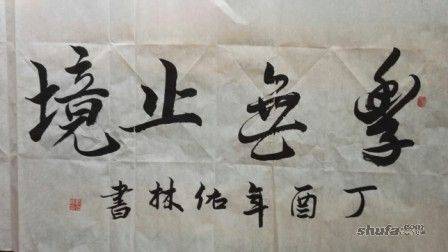 學無止境
丁酉年佑林書
shufa.com